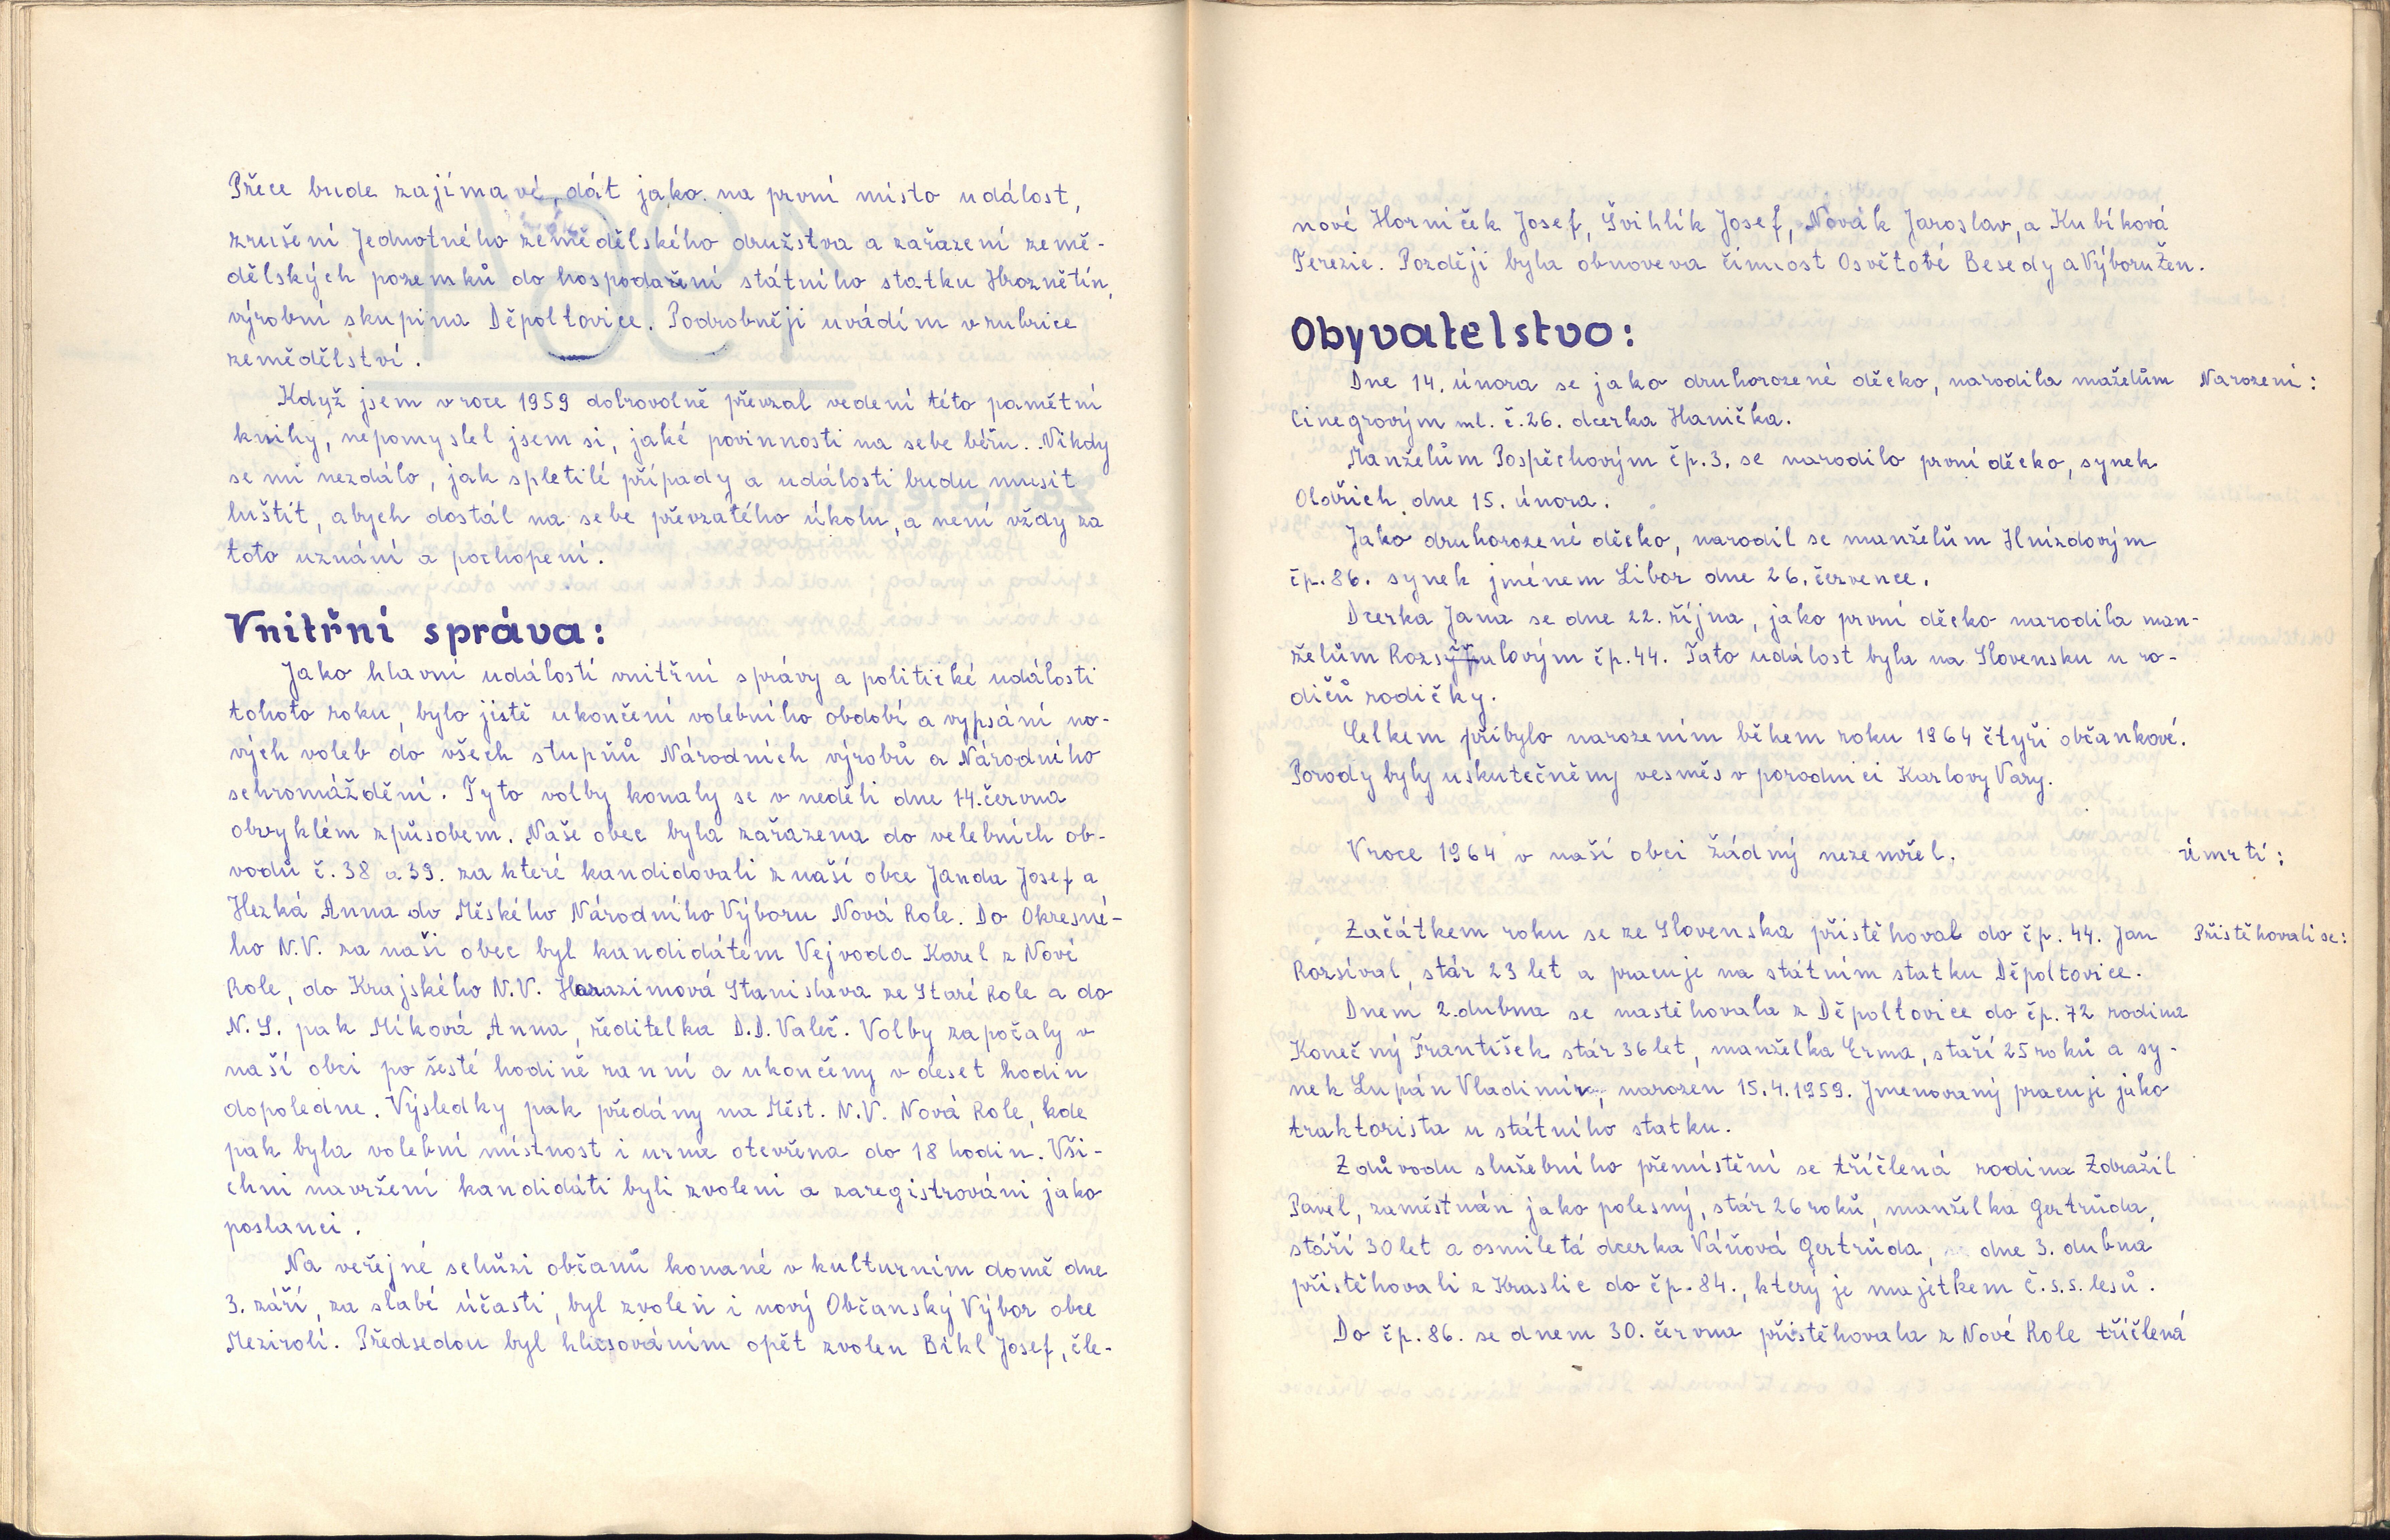 Přece bude zajímavé, dát jako na první místo událost,
zrušení Jednotného zemědělského družstva a zařazení země-
dělských pozemků do hospodaření státního statku Hroznětín,
výrobní skupina Děpoltovice. Podrobněji uvádím v rubrice
zemědělství.
Když jsem v roce 1959 dobrovolně převzal vedení této pamětní
knihy, nepomyslel jsem si, jaké povinnosti na sebe béřu. Nikdy
se mi nezdálo, jak spletilé případy a události budu musit
luštit, abych dostál na sebe převzatého úkolu, a není vždy za
toto uznání a pochopení.
Vnitřní správa:
Jako hlavní událostí vnitřní správy a politické události
tohoto roku, bylo jistě ukončení volebního období a vypsání no-
vých voleb do všech stupňů Národních výrobů a Národního
schromáždění. Tyto volby konaly se v neděli dne 14. června
obvyklém způsobem. Naše obec byla zařazena do velebních ob-
vodů č. 38 a 39. za které kandidovali z naší obce Janda Josef a
Hezká Anna do Měského Národního Výboru Nová Role. Do Okresné-
ho N.V. za naši obec byl kandidátem Vejvoda Karel z Nové
Role, do Krajského N.V. Harazimová Stanislava ze Staré Role a do
N.S. pak Míková Anna, ředitelka D.D. Valeč. Volby započaly v
naší obci po šesté hodině ranní a ukončeny v deset hodin
dopoledne. Výsledky pak předány na Měst. N.V. Nová Role, kde
pak byla volební místnost i urna otevřena do 18 hodin. Vši-
chni navržení kandidáti byli zvoleni a zaregistrováni jako
poslanci.
Na veřejné schůzi občanů konané v kulturním domě dne
3. září, za slabé účasti, byl zvolen i nový Občanský Výbor obce
Mezirolí. Předsedou byl hlasováním opět zvolen Bikl Josef, čle-
nové Horníček Josef, Švihlík Josef, Novák Jaroslav, a Kubíková
Terezie. Později byla obnoveva činnost Osvětové Besedy a Výboru Žen.
Obyvatelstvo:
Dne 14. února se jako druhorozené děcko, narodila maželům Narození:
Cinegrovým ml. č. 26. dcerka Hanička.
Manželům Pospěchovým čp. 3. se narodilo první děcko, synek
Oldřich dne 15. února.
Jako druhorozené děcko, narodil se manželům Hnízdovým
čp. 86. synek jménem Libor dne 26. července.
Dcerka Jana se dne 22. října, jako první děcko narodila man-
želům Rozsývalovým čp. 44. Tato událost byla na Slovensku u ro-
dičů rodičky.
Celkem přibylo narozením během roku 1964 čtyři občankové.
Porody byly uskutečněny vesměs v porodnici Karlovy Vary.
V roce 1964 v naší obci žádný nezemřel. úmrtí:
Začátkem roku se ze Slovenska přistěhoval do čp. 44. Jan Přistěhovali se:
Rozsíval, stár 23 let a pracuje na státním statku Děpoltovice.
Dnem 2. dubna se nastěhovala z Děpoltovice do čp. 72 rodina
Konečný František stár 36 let, manželka Erma, staří 25 roků a sy-
nek Lupán Vladimír, narozen 15.4.1959. Jmenovaný pracuje jako
traktorista u státního statku.
Z důvodu služebního přemístění se tříčlená rodina Zdražil
Pavel, zaměstnán jako polesný, stár 26 roků, manželka Gertrůda,
stáří 30 let a osmiletá dcerka Váňová Gertrůda, dne 3. dubna
přistěhovali z Kraslic do čp. 84., který je majetkem Č.s.s. lesů.
Do čp. 86. se dnem 30. června přistěhovala z Nové Role tříčlená